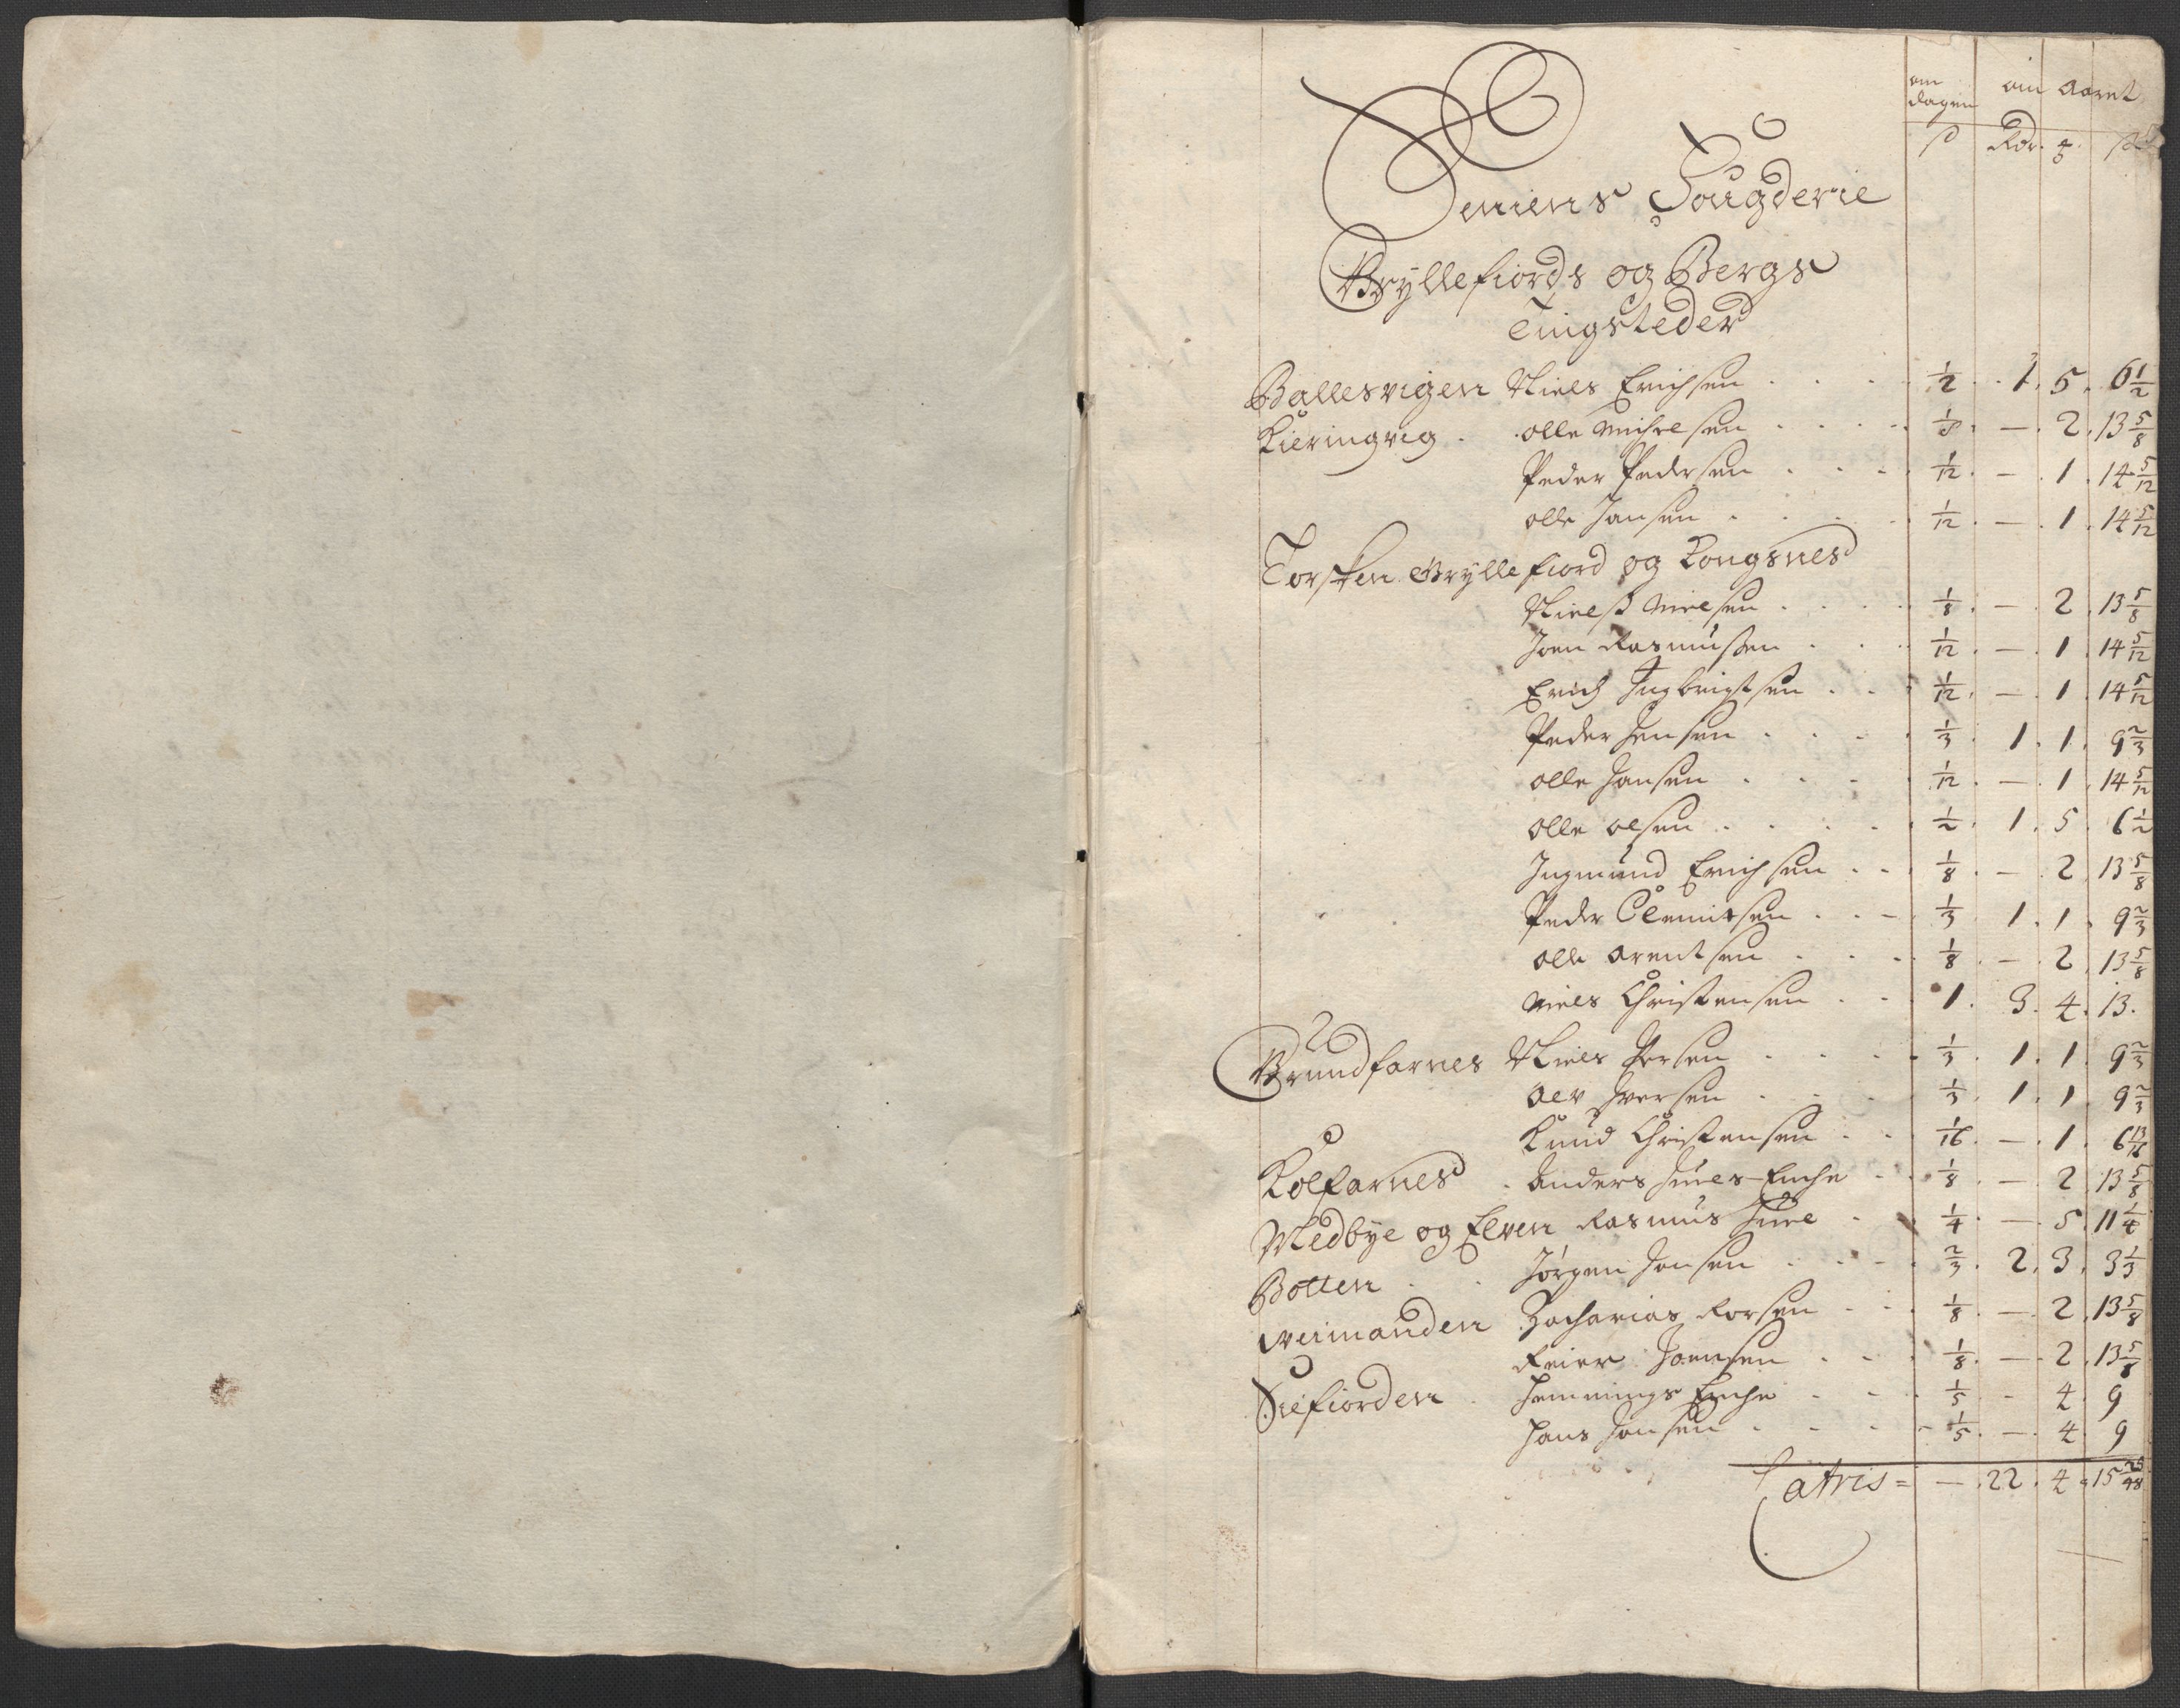 om dagen om aaret
ß Rdr. ß
Seniens Fougderie
Gryllefiords og Bergs
Tingsteder
Ballesvigen Niels Erichsen 1/2 1. 5. 6 1/2
Kieringvig Olle Michelsen 1/8 — 2. 13 5/8
Peder Pedersen 1/12 — 1. 14 5/12
Olle Jansen 1/12 — 1. 14 5/12
Torsken Gryllefiord og Kongsnes
Nielß Nielsen 1/8 — 2. 13 5/8
Joen Rasmusßen 1/12 — 1. 14 5/12
Erich Ingbrigtsen 1/12 — 1. 14 5/12
Peder Jensen 1/3 1. 1. 9 2/3
Olle Hansen 1/12 — 1 14 5/12
Olle Olsen 1/2 1. 5. 6 1/2
Ingmund Erichsen 1/8 — 2. 13 5/8
Peder Clemitsen 1/3 1. 1. 9 2/3
Olle Arentsen 1/8 — 2. 13 5/8
Niels Christensen 1. 3. 4. 13.
Grundfarnes Niels Persen 1/3 1. 1. 9 2/3
Ole Iversen 1/3 1. 1. 9 2/3
Knud Christensen 1/16 — 1. 6 13/16
Kolfarnes Anders Enche 1/8 — 2. 13 5/8
Medbye og Elven Rasmus 1/4 — 5. 11 1/4
Botten Jørgen Jonsen 2/3 2. 3. 3 1/3
Veimanden Zacharias Korsen 1/8 — 2. 13 5/8
Reier Joensen 1/8 — 2. 13 5/8
Sifiorden Hemmings Enche 1/5 - 4. 9
Hans Jonsen 1/5 — 4. 9
Latris = — 22. 4. 15 25/48